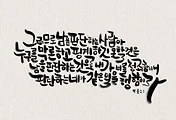 그러므로 남을 판단하는 사람아
누구를 막론하고 네가 핑계하지 못할 것은
남을 판단하는 것으로 네가 너를 정죄함이니
판단하는 네가 같은 일을 행함이라